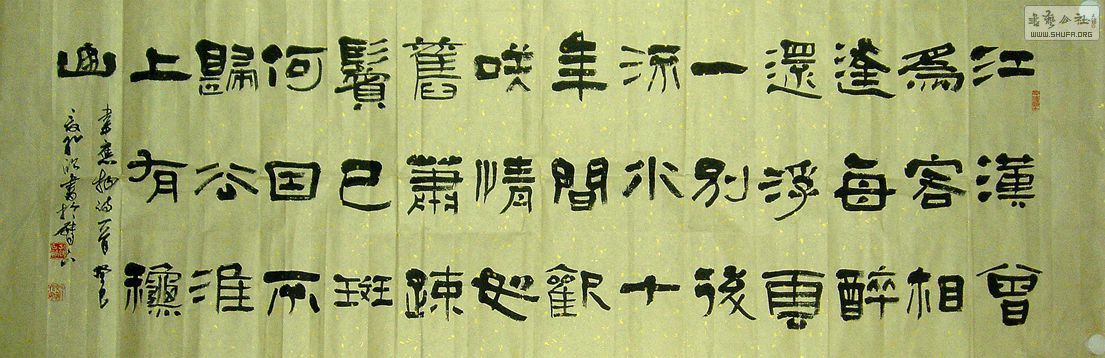 江漢曾
爲客相
逢每醉
還浮雲
一別後
流水十
年間歡
咲情如
舊蕭踈
鬢已斑
何因不
歸去淮
上有穐
山
韋應物詩一首 癸巳
書於
书艺公社
WWW.SHUFA.ORG